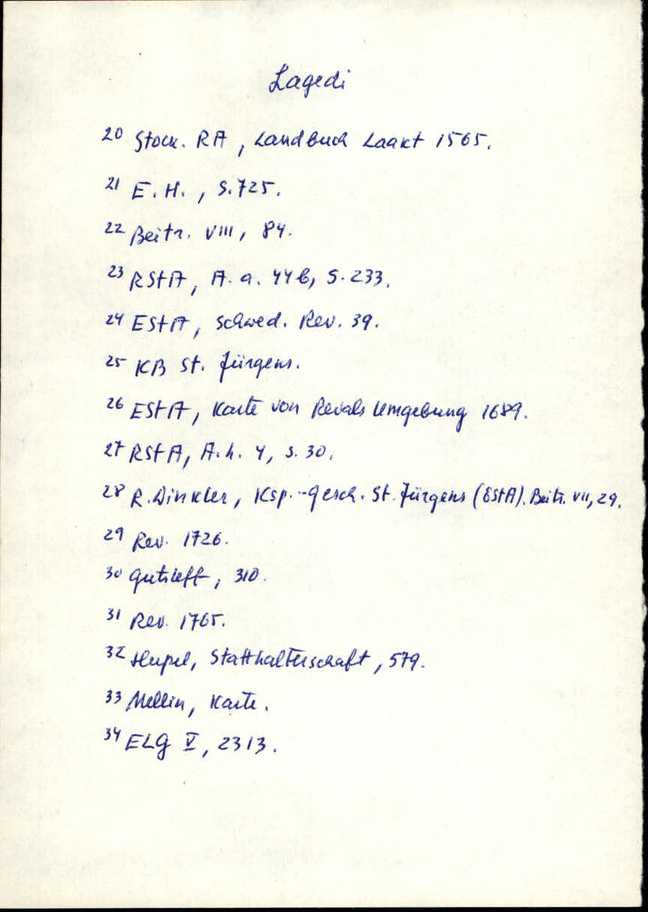 Lagedi
20 Stock. RA, Landbuch Laakt 1565.
21 E.H., S.725.
22 Beitr. VIII, 84.
23 RStA, A.a. 44b, S.233.
24 EStA, Schwed. Rev. 39.
25 KB St. Jürgens.
26 EStA, Karte von Revals Umgebung 1689.
27 RStA, A.h. 4, S.30.
28 R. Winkler, Ksp.-Gesch. St. Jürgens (EStA). Beitr. VII, 29.
29 Rev. 1726.
30 Gutsleff, 310.
31 Rev. 1765.
32 Hupel, Statthalterschaft, 579.
33 Mellin, Karte.
34 ELG V, 2313.